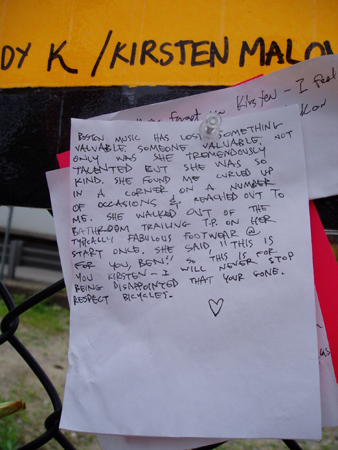 DY K / KIRSTEN MALO
Kirsten - I feel
BOSTON MUSIC HAS LOST SOMETHING
VALUABLE, SOMEONE VALUABLE. NOT
ONLY WAS SHE TREMENDOUSLY
TALENTED BUT SHE WAS SO
KIND. SHE FOUND ME CURLED UP
IN A CORNER ON A NUMBER
OF OCCASIONS & REACHED OUT TO
ME. SHE WALKED OUT OF THE
BATHROOM TRAILING T.P. ON HER
TYPICALLY FABULOUS FOOTWEAR @
START ONCE. SHE SAID "THIS IS
FOR YOU, BEN!" SO, THIS IS FOR
YOU KIRSTEN - I WILL NEVER STOP
BEING DISAPPOINTED THAT YOUR GONE.
RESPECT BICYCLES.